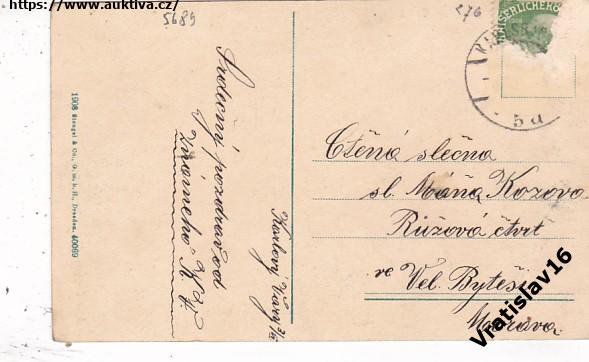 https://www.auktiva.cz/
5689
276
KAISERLICHEKÖ
5d
1908 Stengel & Co., G. m. b. H., Dresden. 40069
Srdečný pozdrav od
známého K. V.
Karlovy Vary
Ctěná slečna
sl. Máňa Kozovo
Růžová čtvrt
ve Vel. Byteši
Morava.
Vratislav16